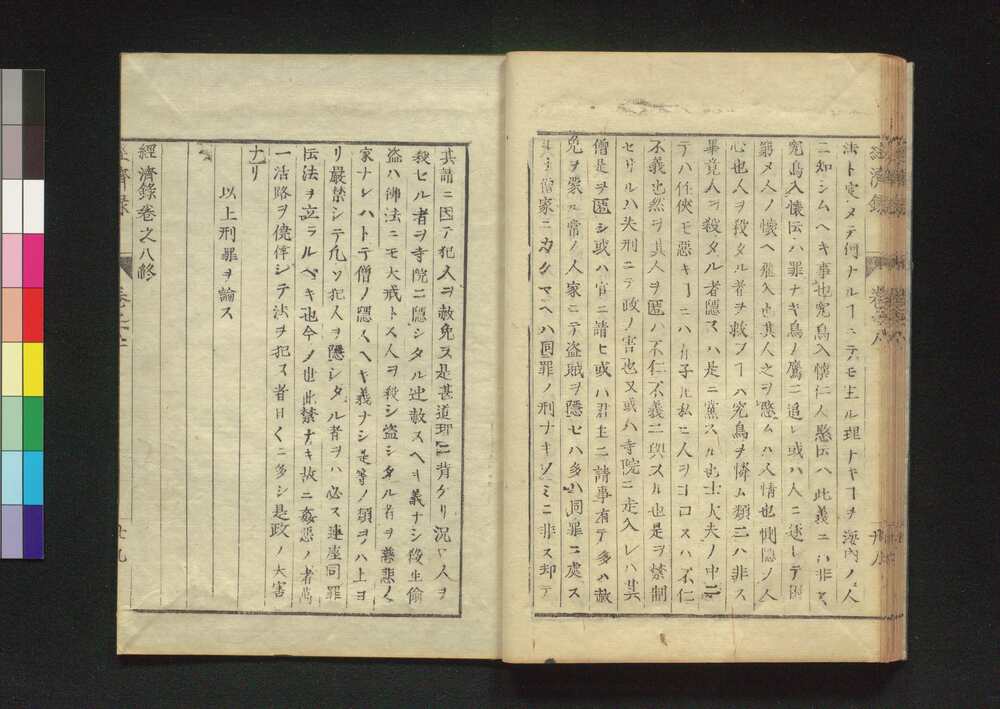 法ト定メテ何ナルヿニテモ主ル理ナキヿヲ海内ノ人
ニ知シムヘキ事也窮鳥入懐仁人愍伝ハ此義ニハ非ス
窮鳥入懐伝ハ罪ナキ鳥ノ鷹ニ追レ或ハ人ニ逐レテ困
窮メ人ノ懐ヘ飛入也其人之ヲ愍ムハ人情也惻隠ノ人
心也人ヲ殺タル者ヲ救フヿハ窮鳥ヲ憐ム類ニハ非ス
畢竟人ヲ殺タル者隠スハ是ニ黨スル也士大夫ノ中ニ
テハ任侠モ悪キヿニハ有子ル私ニ人ヲヨロスハ不仁
不義也然ヲ其人ヲ匿ハ不仁不義ニ與スル也是ヲ禁制
セサルハ失刑ニテ政ノ害也又或ハ寺院ニ走入レハ其
僧是ヲ匿シ或ハ官ニ請ヒ或ハ君主ニ請事有テ多ハ赦
免ヲ蒙ル常ノ人家ニテ盗賊ヲ隠セハ多ハ同罪ニ處ス
ルニ僧家ニカクマヘハ同罪ノ刑ナキノミニ非ス却テ
其請ニ因テ犯人ヲ赦免ス是甚道理ニ背ケリ況ヤ人ヲ
殺セル者ヲ寺院ニ隠シタル迚赦スヘキ義ナシ殺生偸
盗ハ佛法ニモ大戒トス人ヲ殺シ盗シタル者ヲ慈悲ノ
家ナレハトテ僧ノ隠スヘキ義ナシ是等ノ類ヲハ上ヨ
リ嚴禁シテ凡ソ犯人ヲ隠シタル者ヲハ必ス連座同罪
伝法ヲ立ラルベキ也今ノ世此禁ナキ故ニ姦悪ノ者萬
一活路ヲ僥倖シテ法ヲ犯ス者日々ニ多シ是政ノ大害
ナリ
以上刑罪ヲ論ス
經濟錄卷之八終